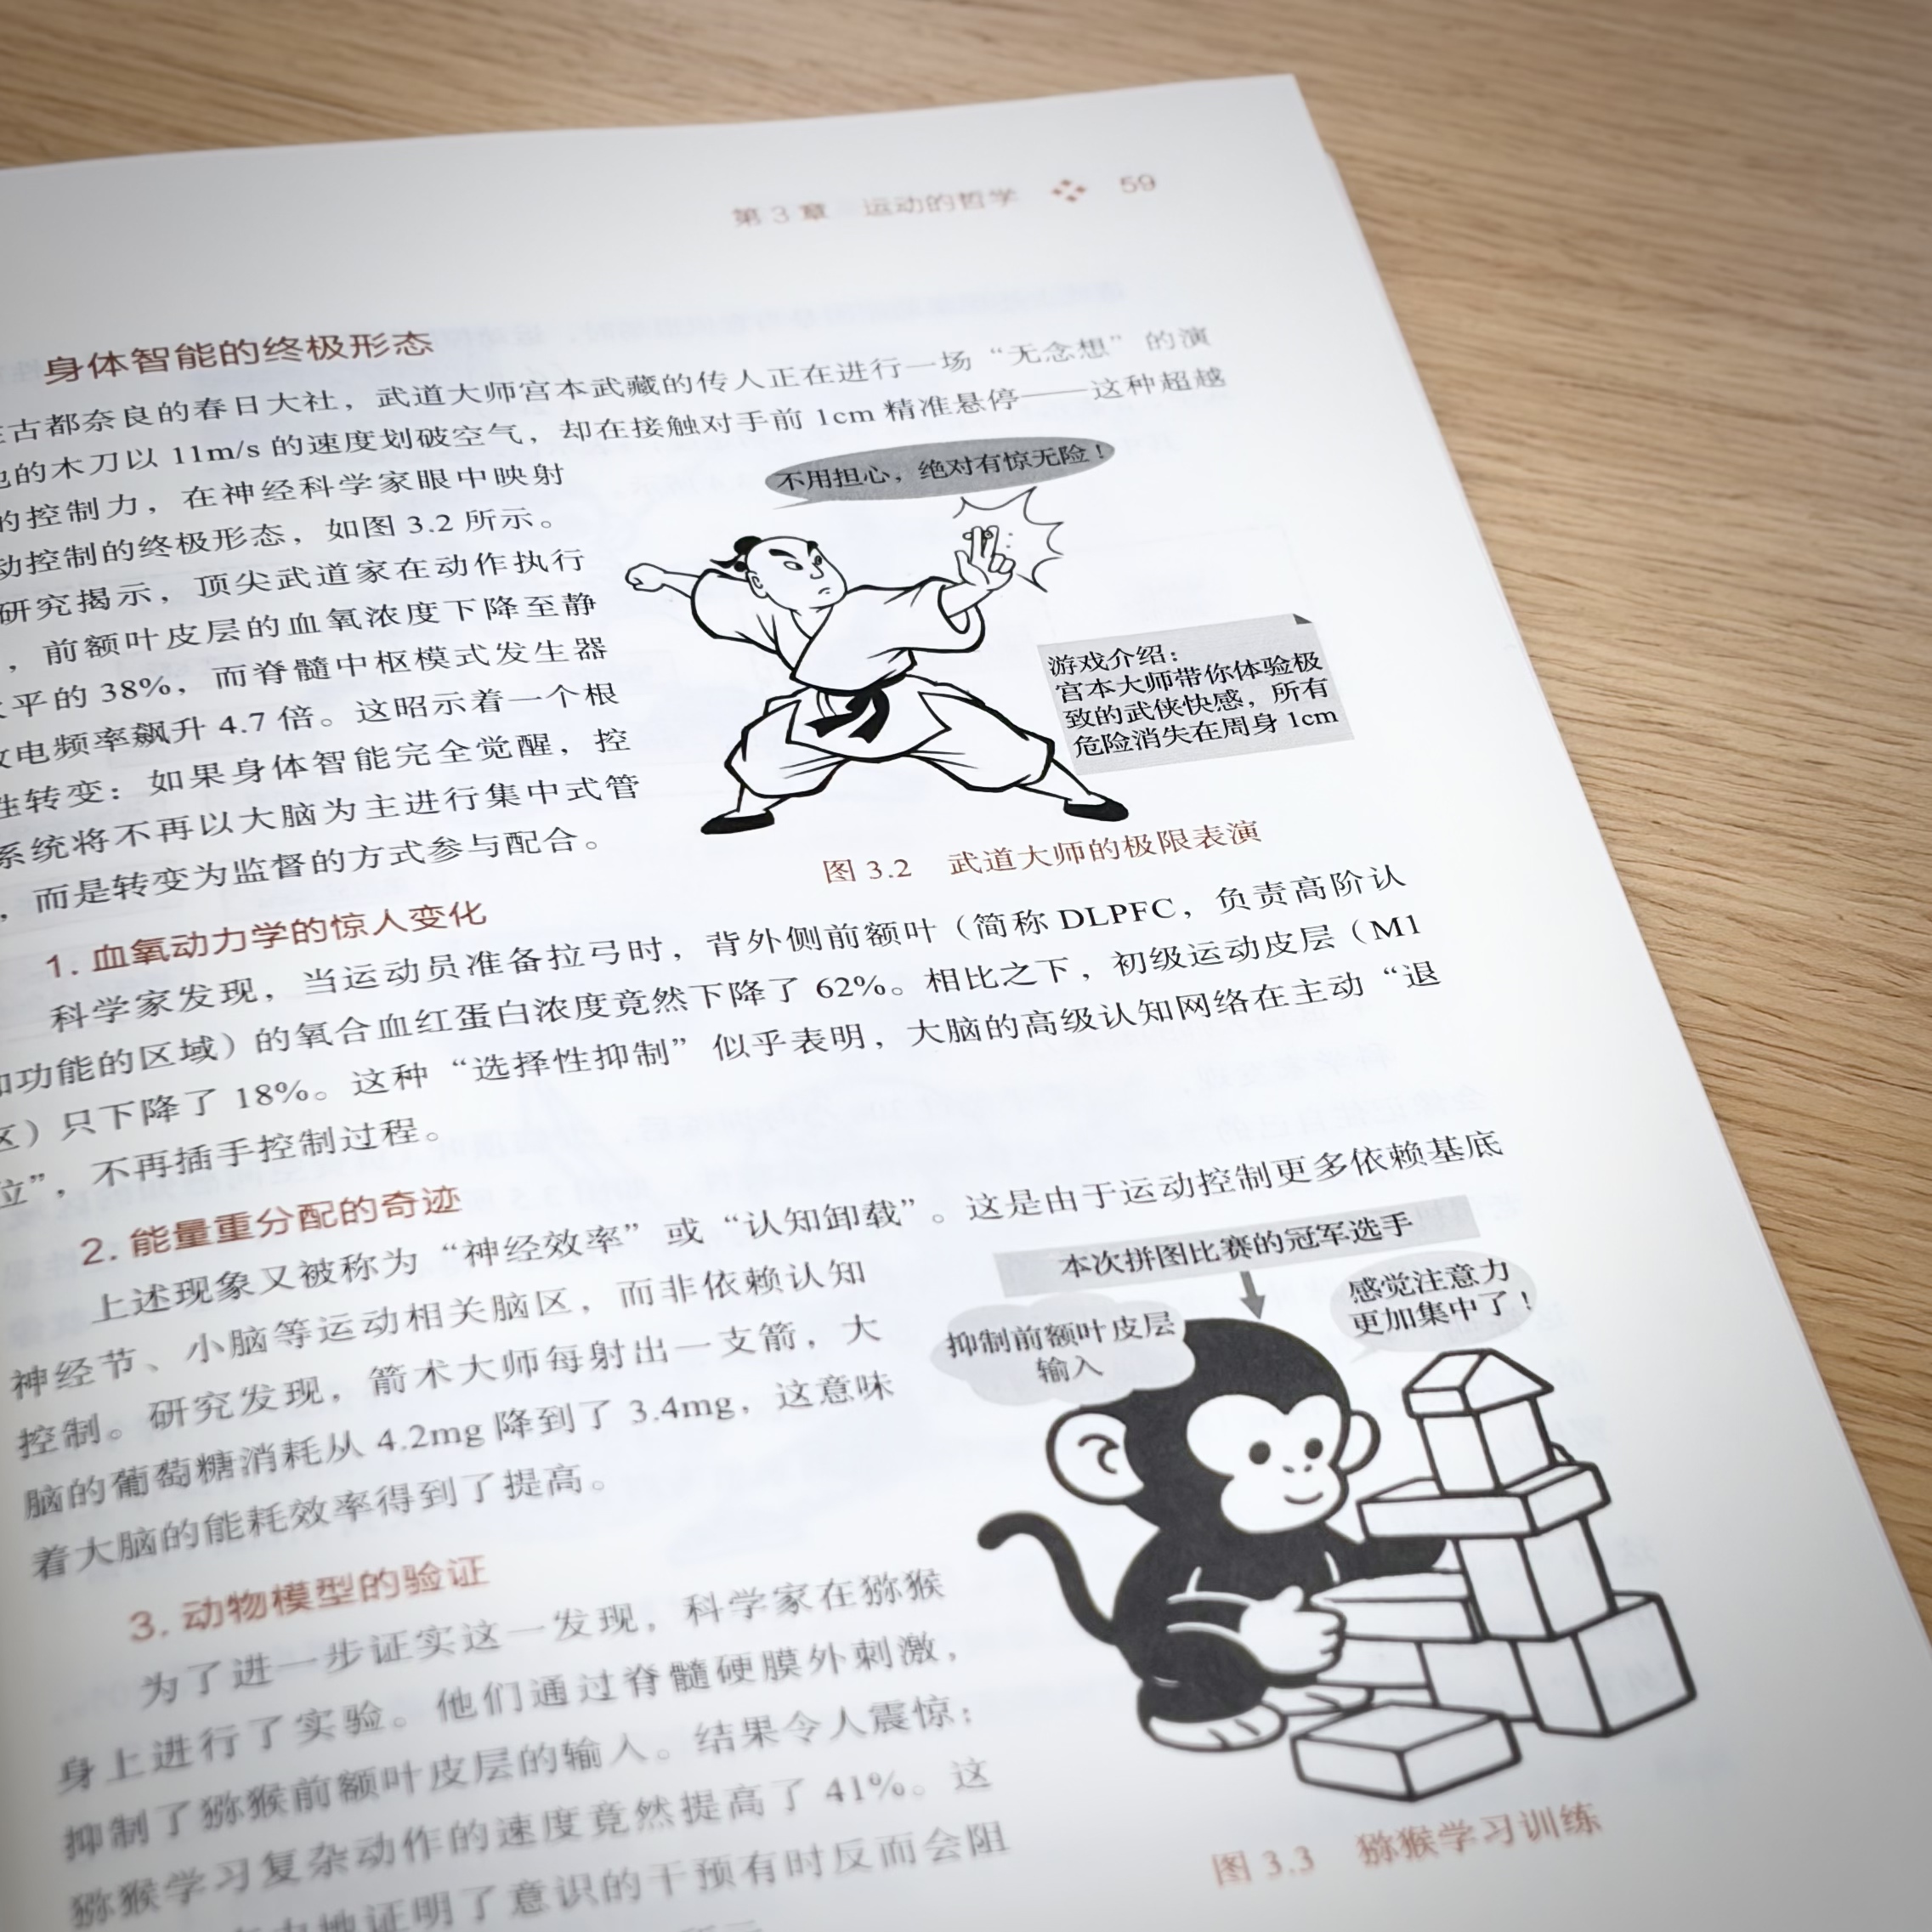 第 3 章 运动的哲学 59
身体智能的终极形态
古都奈良的春日大社，武道大师宫本武藏的传人正在进行一场“无念想”的演
的木刀以 11m/s 的速度划破空气，却在接触对手前 1cm 精准悬停——这种超越
的控制力，在神经科学家眼中映射
动控制的终极形态，如图 3.2 所示。
研究揭示，顶尖武道家在动作执行
，前额叶皮层的血氧浓度下降至静
平的 38%，而脊髓中枢模式发生器
电频率飙升 4.7 倍。这昭示着一个根
性转变：如果身体智能完全觉醒，控
系统将不再以大脑为主进行集中式管
，而是转变为监督的方式参与配合。
不用担心，绝对有惊无险！
游戏介绍：
宫本大师带你体验极
致的武侠快感，所有
危险消失在周身 1cm
图 3.2 武道大师的极限表演
1. 血氧动力学的惊人变化
科学家发现，当运动员准备拉弓时，背外侧前额叶（简称 DLPFC，负责高阶认
知功能的区域）的氧合血红蛋白浓度竟然下降了 62%。相比之下，初级运动皮层（M1
区）只下降了 18%。这种“选择性抑制”似乎表明，大脑的高级认知网络在主动“退
位”，不再插手控制过程。
2. 能量重分配的奇迹
上述现象又被称为“神经效率”或“认知卸载”。这是由于运动控制更多依赖基底
神经节、小脑等运动相关脑区，而非依赖认知
控制。研究发现，箭术大师每射出一支箭，大
脑的葡萄糖消耗从 4.2mg 降到了 3.4mg，这意味
着大脑的能耗效率得到了提高。
本次拼图比赛的冠军选手
抑制前额叶皮层
输入
感觉注意力
更加集中了！
3. 动物模型的验证
为了进一步证实这一发现，科学家在猕猴
身上进行了实验。他们通过脊髓硬膜外刺激，
抑制了猕猴前额叶皮层的输入。结果令人震惊：
猕猴学习复杂动作的速度竟然提高了 41%。这
地证明了意识的干预有时反而会阻
图 3.3 猕猴学习训练